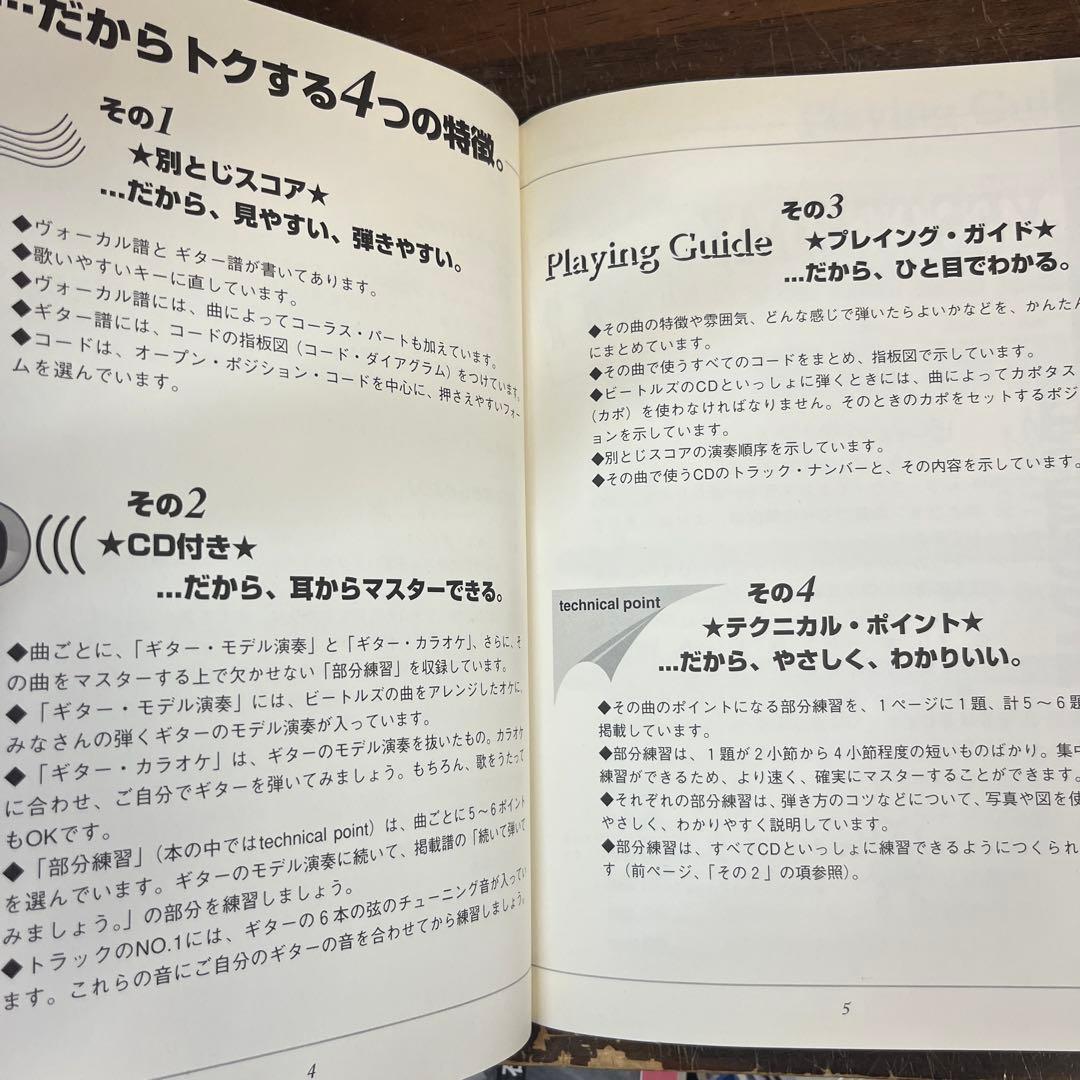 …だからトクする4つの特徴。
その1
★別とじスコア★
…だから、見やすい、弾きやすい。
◆ヴォーカル譜と ギター譜が書いてあります。
◆歌いやすいキーに直しています。
◆ヴォーカル譜には、曲によってコーラス・パートも加えています。
◆ギター譜には、コードの指板図（コード・ダイアグラム）をつけています。
◆コードは、オープン・ポジション・コードを中心に、押さえやすいフォー
ムを選んでいます。
その2
★CD付き★
…だから、耳からマスターできる。
◆曲ごとに、「ギター・モデル演奏」と「ギター・カラオケ」、さらに、そ
の曲をマスターする上で欠かせない「部分練習」を収録しています。
◆「ギター・モデル演奏」には、ビートルズの曲をアレンジしたオケに、
みなさんの弾くギターのモデル演奏が入っています。
◆「ギター・カラオケ」は、ギターのモデル演奏を抜いたもの。カラオケ
に合わせ、ご自分でギターを弾いてみましょう。もちろん、歌をうたって
もOKです。
◆「部分練習」（本の中ではtechnical point）は、曲ごとに５〜６ポイント
を選んでいます。ギターのモデル演奏に続いて、掲載譜の「続いて弾いて
みましょう。」の部分を練習しましょう。
◆トラックのNO.1には、ギターの６本の弦のチューニング音が入ってい
ます。これらの音にご自分のギターの音を合わせてから練習しましょう。
4
その3
Playing Guide
★プレイング・ガイド★
…だから、ひと目でわかる。
◆その曲の特徴や雰囲気、どんな感じで弾いたらよいかなどを、かんたん
にまとめています。
◆その曲で使うすべてのコードをまとめ、指板図で示しています。
◆ビートルズのCDといっしょに弾くときには、曲によってカポタス
（カポ）を使わなければなりません。そのときのカポをセットするポジ
ョンを示しています。
◆別とじスコアの演奏順序を示しています。
◆その曲で使うCDのトラック・ナンバーと、その内容を示しています。
technical point
その4
★テクニカル・ポイント★
…だから、やさしく、わかりいい。
◆その曲のポイントになる部分練習を、１ページに１題、計５〜６題
掲載しています。
◆部分練習は、１題が２小節から４小節程度の短いものばかり。集中
練習ができるため、より速く、確実にマスターすることができます。
◆それぞれの部分練習は、弾き方のコツなどについて、写真や図を使
やさしく、わかりやすく説明しています。
◆部分練習は、すべてCDといっしょに練習できるようにつくられ
す（前ページ、「その２」の項参照）。
5